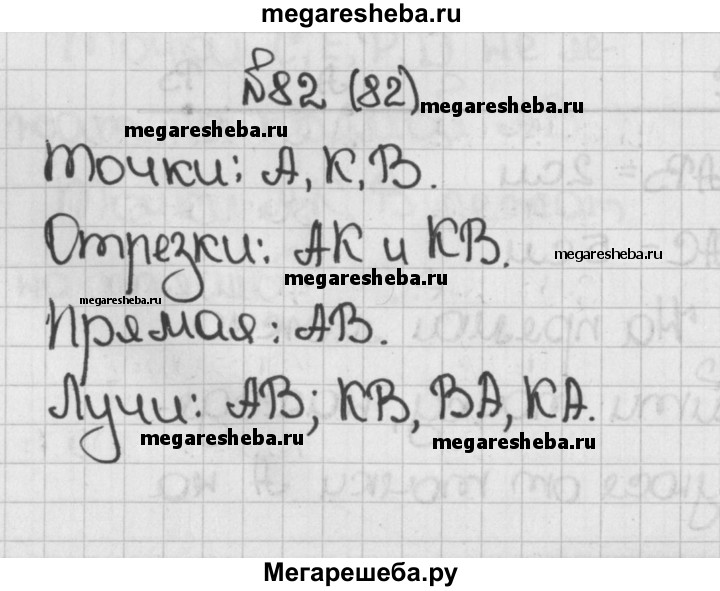 megaresheba.ru
№82 (82)
megaresheba.ru
megaresheba.ru
Точки: А, К, В.
Отрезки: АК и КВ.
megaresheba.ru
megaresheba.ru
megaresheba.ru
Прямая: АВ.
Лучи: АВ; КВ, ВА, КА.
megaresheba.ru
megaresheba.ru
Мегарешеба.ру